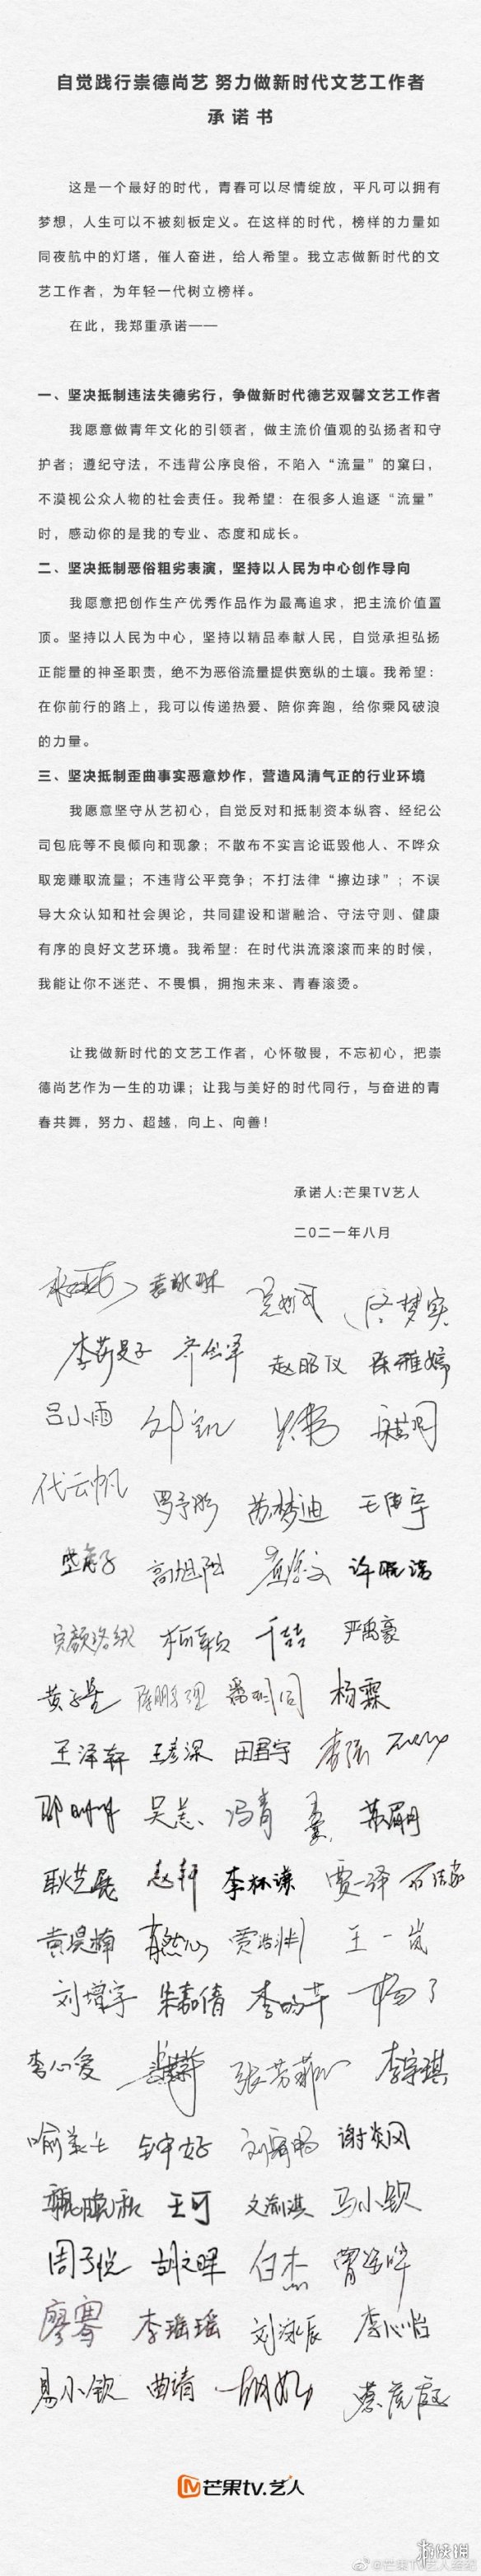 自觉践行崇德尚艺 努力做新时代文艺工作者
承诺书
这是一个最好的时代，青春可以尽情绽放，平凡可以拥有
梦想，人生可以不被刻板定义。在这样的时代，榜样的力量如
同夜航中的灯塔，催人奋进，给人希望。我立志做新时代的文
艺工作者，为年轻一代树立榜样。
在此，我郑重承诺——
一、坚决抵制违法失德劣行，争做新时代德艺双馨文艺工作者
我愿意做青年文化的引领者，做主流价值观的弘扬者和守
护者；遵纪守法，不违背公序良俗，不陷入“流量”的窠臼，
不漠视公众人物的社会责任。我希望：在很多人追逐“流量”
时，感动你的是我的专业、态度和成长。
二、坚决抵制恶俗粗劣表演，坚持以人民为中心创作导向
我愿意把创作生产优秀作品作为最高追求，把主流价值置
顶。坚持以人民为中心，坚持以精品奉献人民，自觉承担弘扬
正能量的神圣职责，绝不为恶俗流量提供宽纵的土壤。我希望：
在你前行的路上，我可以传递热爱、陪你奔跑，给你乘风破浪
的力量。
三、坚决抵制歪曲事实恶意炒作，营造风清气正的行业环境
我愿意坚守从艺初心，自觉反对和抵制资本纵容、经纪公
司包庇等不良倾向和现象；不散布不实言论诋毁他人、不哗众
取宠赚取流量；不违背公平竞争；不打法律“擦边球”；不误
导大众认知和社会舆论，共同建设和谐融洽、守法守则、健康
有序的良好文艺环境。我希望：在时代洪流滚滚而来的时候，
我能让你不迷茫、不畏惧，拥抱未来、青春滚烫。
让我做新时代的文艺工作者，心怀敬畏，不忘初心，把崇
德尚艺作为一生的功课；让我与美好的时代同行，与奋进的青
春共舞，努力、超越，向上、向善！
承诺人:芒果TV艺人
二〇二一年八月
袁咏琳
李莎旻子 齐思钧 赵昭仪 陈雅婷
吕小雨
代云帆 罗予彤 苏梦迪
高旭阳 许晓诺
完颜洛绒 严禹豪
黄子星 杨霖
王泽轩 王彦深 田君宇
吴恙 冯青
耿艺展 赵轩 李林谦 贾一泽
黄昊楠 贾浩非 王一岚
刘增宇 朱嘉倩
李心爱 李宇琪
钟好 谢炎风
王可 马小钦
周子悦 胡文晖 白杰
廖骞 李瑶瑶 刘泳辰 李心怡
易小钦 曲靖
芒果tv.艺人
游侠网
@芒果TV艺人经纪